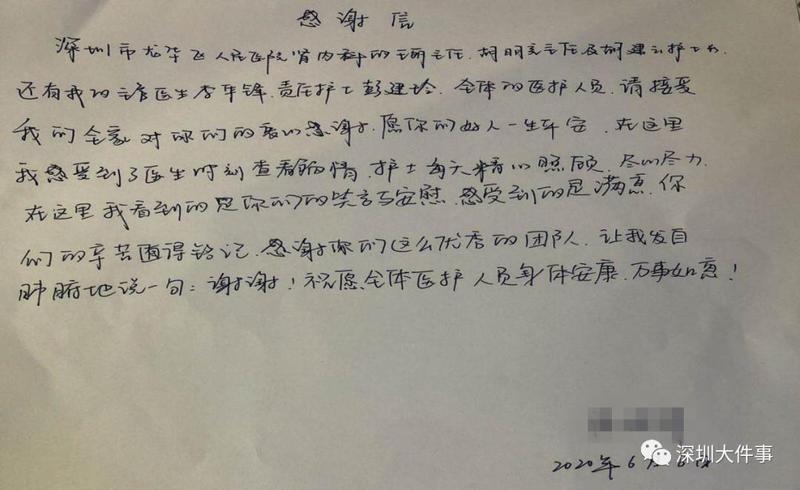 感谢信
深圳市龙华区人民医院肾内科的主任、胡明亮主任及胡建云护士长
还有我的主管医生李年锋、责任护士彭建玲、全体的医护人员,请接受
我们全家对你们的衷心感谢,愿你们好人一生平安,在这里
我感受到了医生时刻查看病情,护士每天精心照顾,尽心尽力.
在这里我看到的是你们的笑言与安慰,感受到的是满意,你
们的辛苦值得铭记,感谢你们这么优秀的团队,让我发自
肺腑地说一句:谢谢!祝愿全体医护人员身体安康,万事如意!
深圳大件事
2020年6月6日